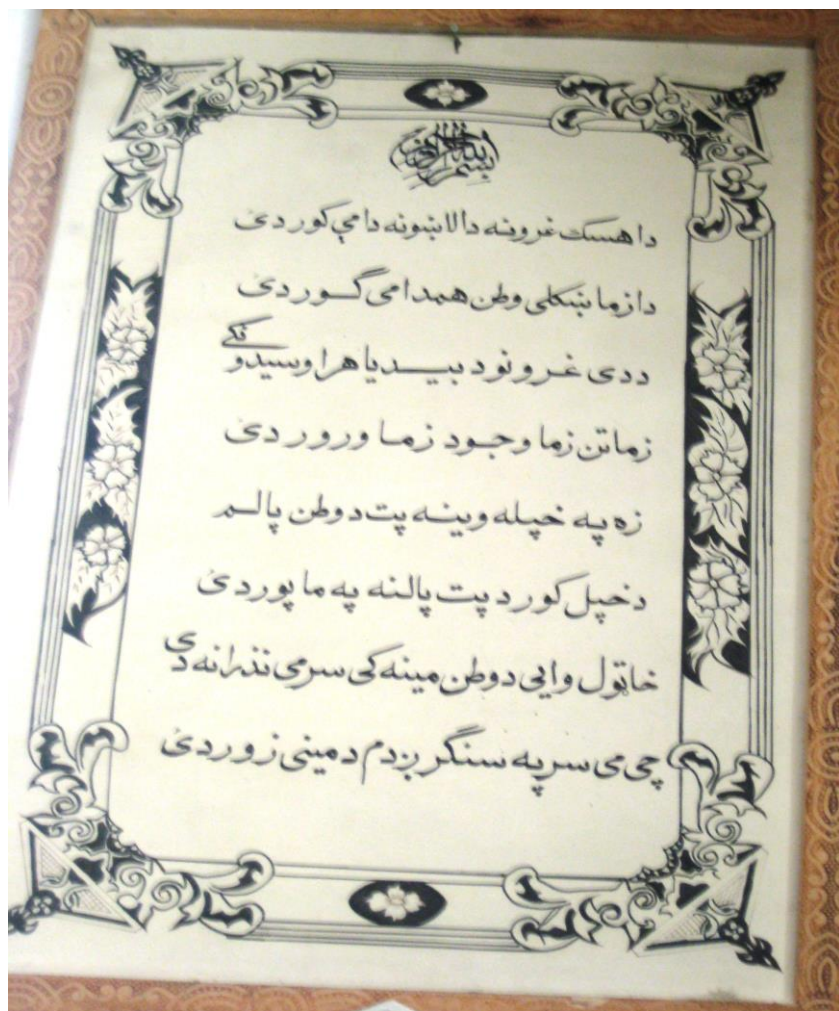 بسم الله الرحمن الرحیم
دا هسک غرونه دا لاښونه دا مې کور دئ
دا زما ښکلی وطن همدا می گور دئ
ددی غرونو د بیدیا هر اوسیدوفکی
زما تن زما وجود زما ورور دئ
زه په خپله وینه پت د وطن پالم
د خپل کور د پت پالنه په ما پور دئ
خاتول وایی د وطن مینه کی سر می نذرانه دی
چی می سر په سنگر ږدم د مینی زور دئ